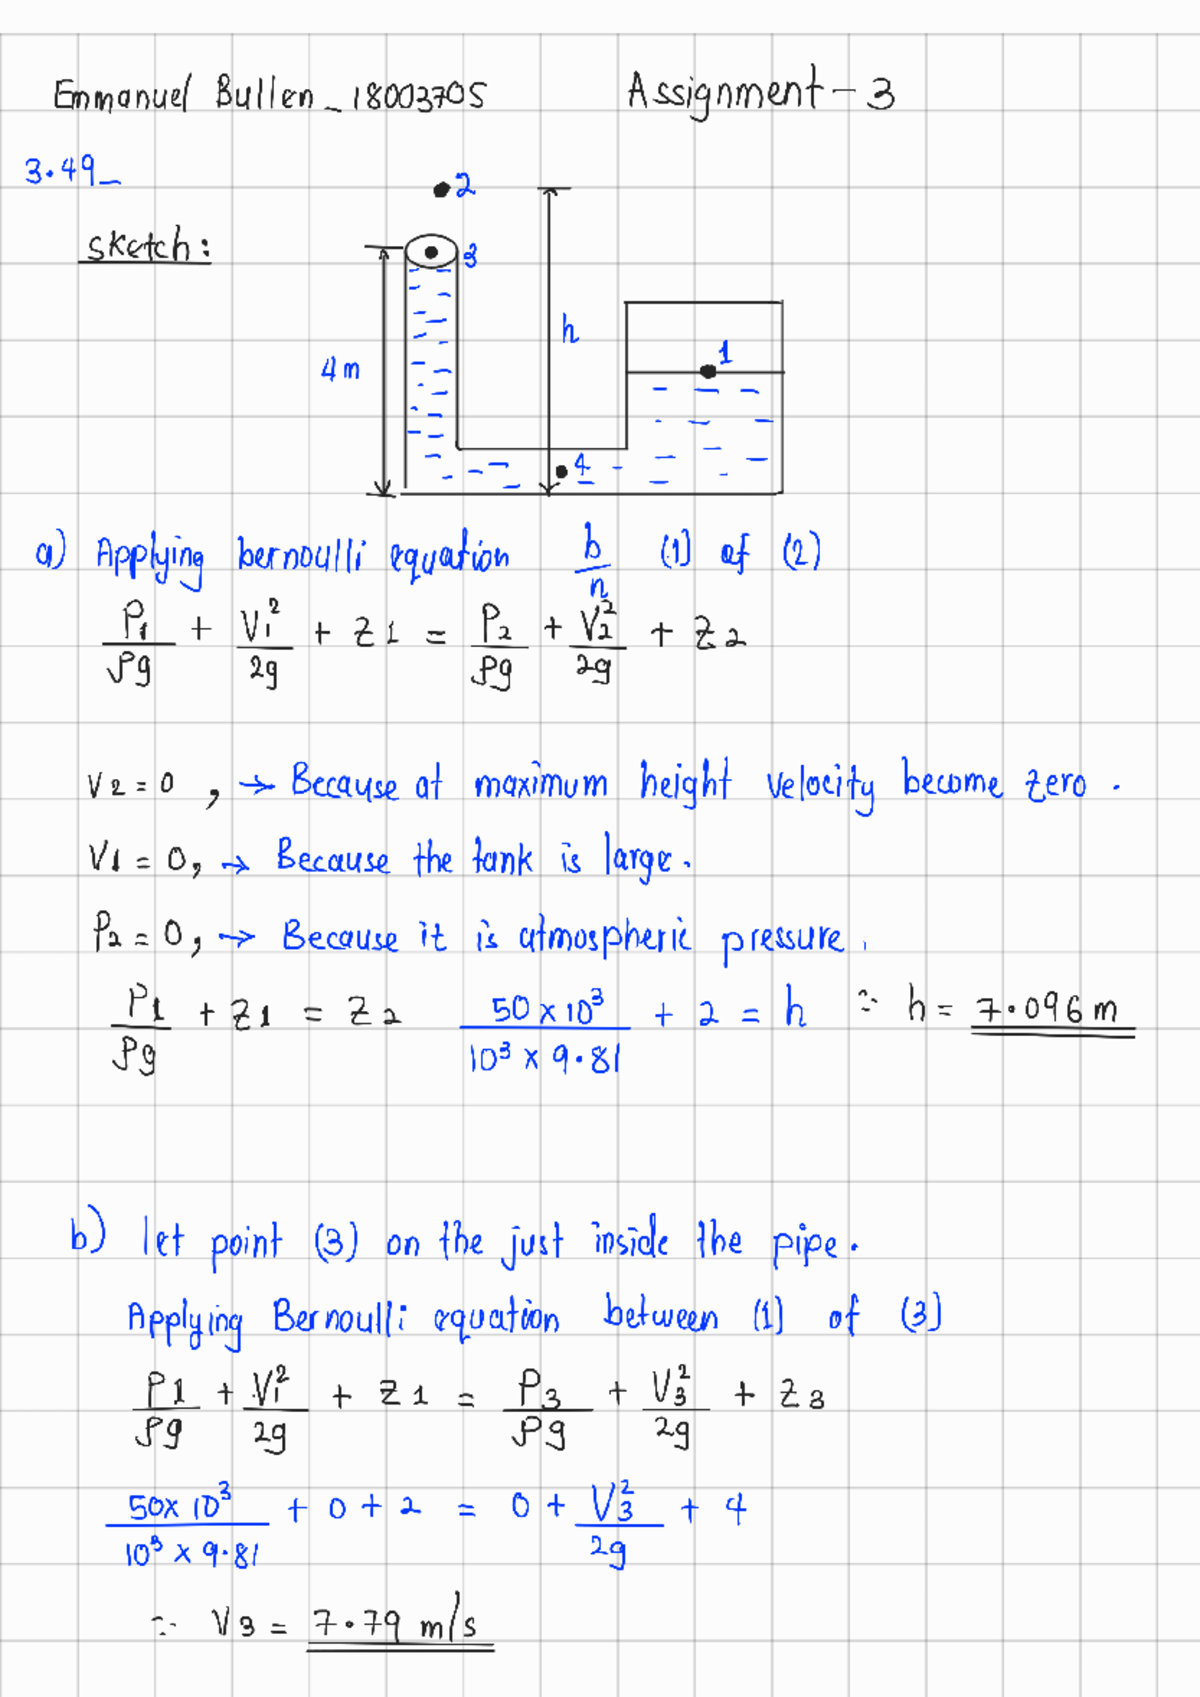 Emmanuel Bullen_18003705 Assignment-3
3.49_
sketch:
2
3
h
4m
1
4
a) Applying bernoulli equation b/n (1) of (2)
P1/ρg + V1²/2g + Z1 = P2/ρg + V2²/2g + Z2
V2 = 0 , → Because at maximum height velocity become zero .
V1 = 0, → Because the tank is large.
P2 = 0, → Because it is atmospheric pressure.
P1/ρg + Z1 = Z2 50 x 10³/10³ x 9.81 + 2 = h ∵ h = 7.096 m
b) let point (3) on the just inside the pipe.
Applying Bernoulli equation between (1) of (3)
P1/ρg + V1²/2g + Z1 = P3/ρg + V3²/2g + Z3
50x 10³/10³ x 9.81 + 0 + 2 = 0 + V3²/2g + 4
∵ V3 = 7.79 m/s